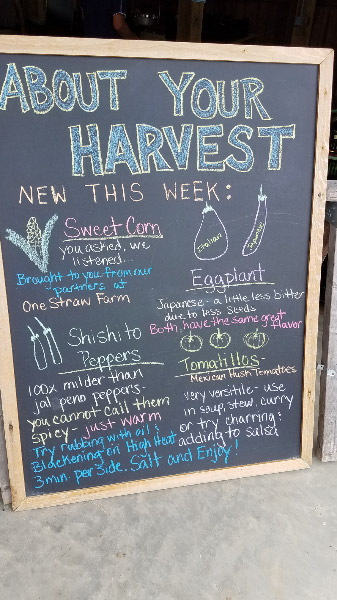 ABOUT YOUR
HARVEST
NEW THIS WEEK:
Sweet Corn
you asked, we
listened...
Brought to you from our
partners at
One Straw Farm
Italian
Japanese
Eggplant
Japanese - a little less bitter
due to less seeds
Both, have the same great
flavor
Shishito
Peppers
100x milder than
jalpeno peppers.
you cannot call them
spicy - just warm
Try rubbing with oil &
Blackening on High Heat
3 min. per side. Salt and Enjoy!
Tomatillos -
Mexican Husk Tomatoes
very versitile - use
in soup, stew, curry
or try charring &
adding to salsa